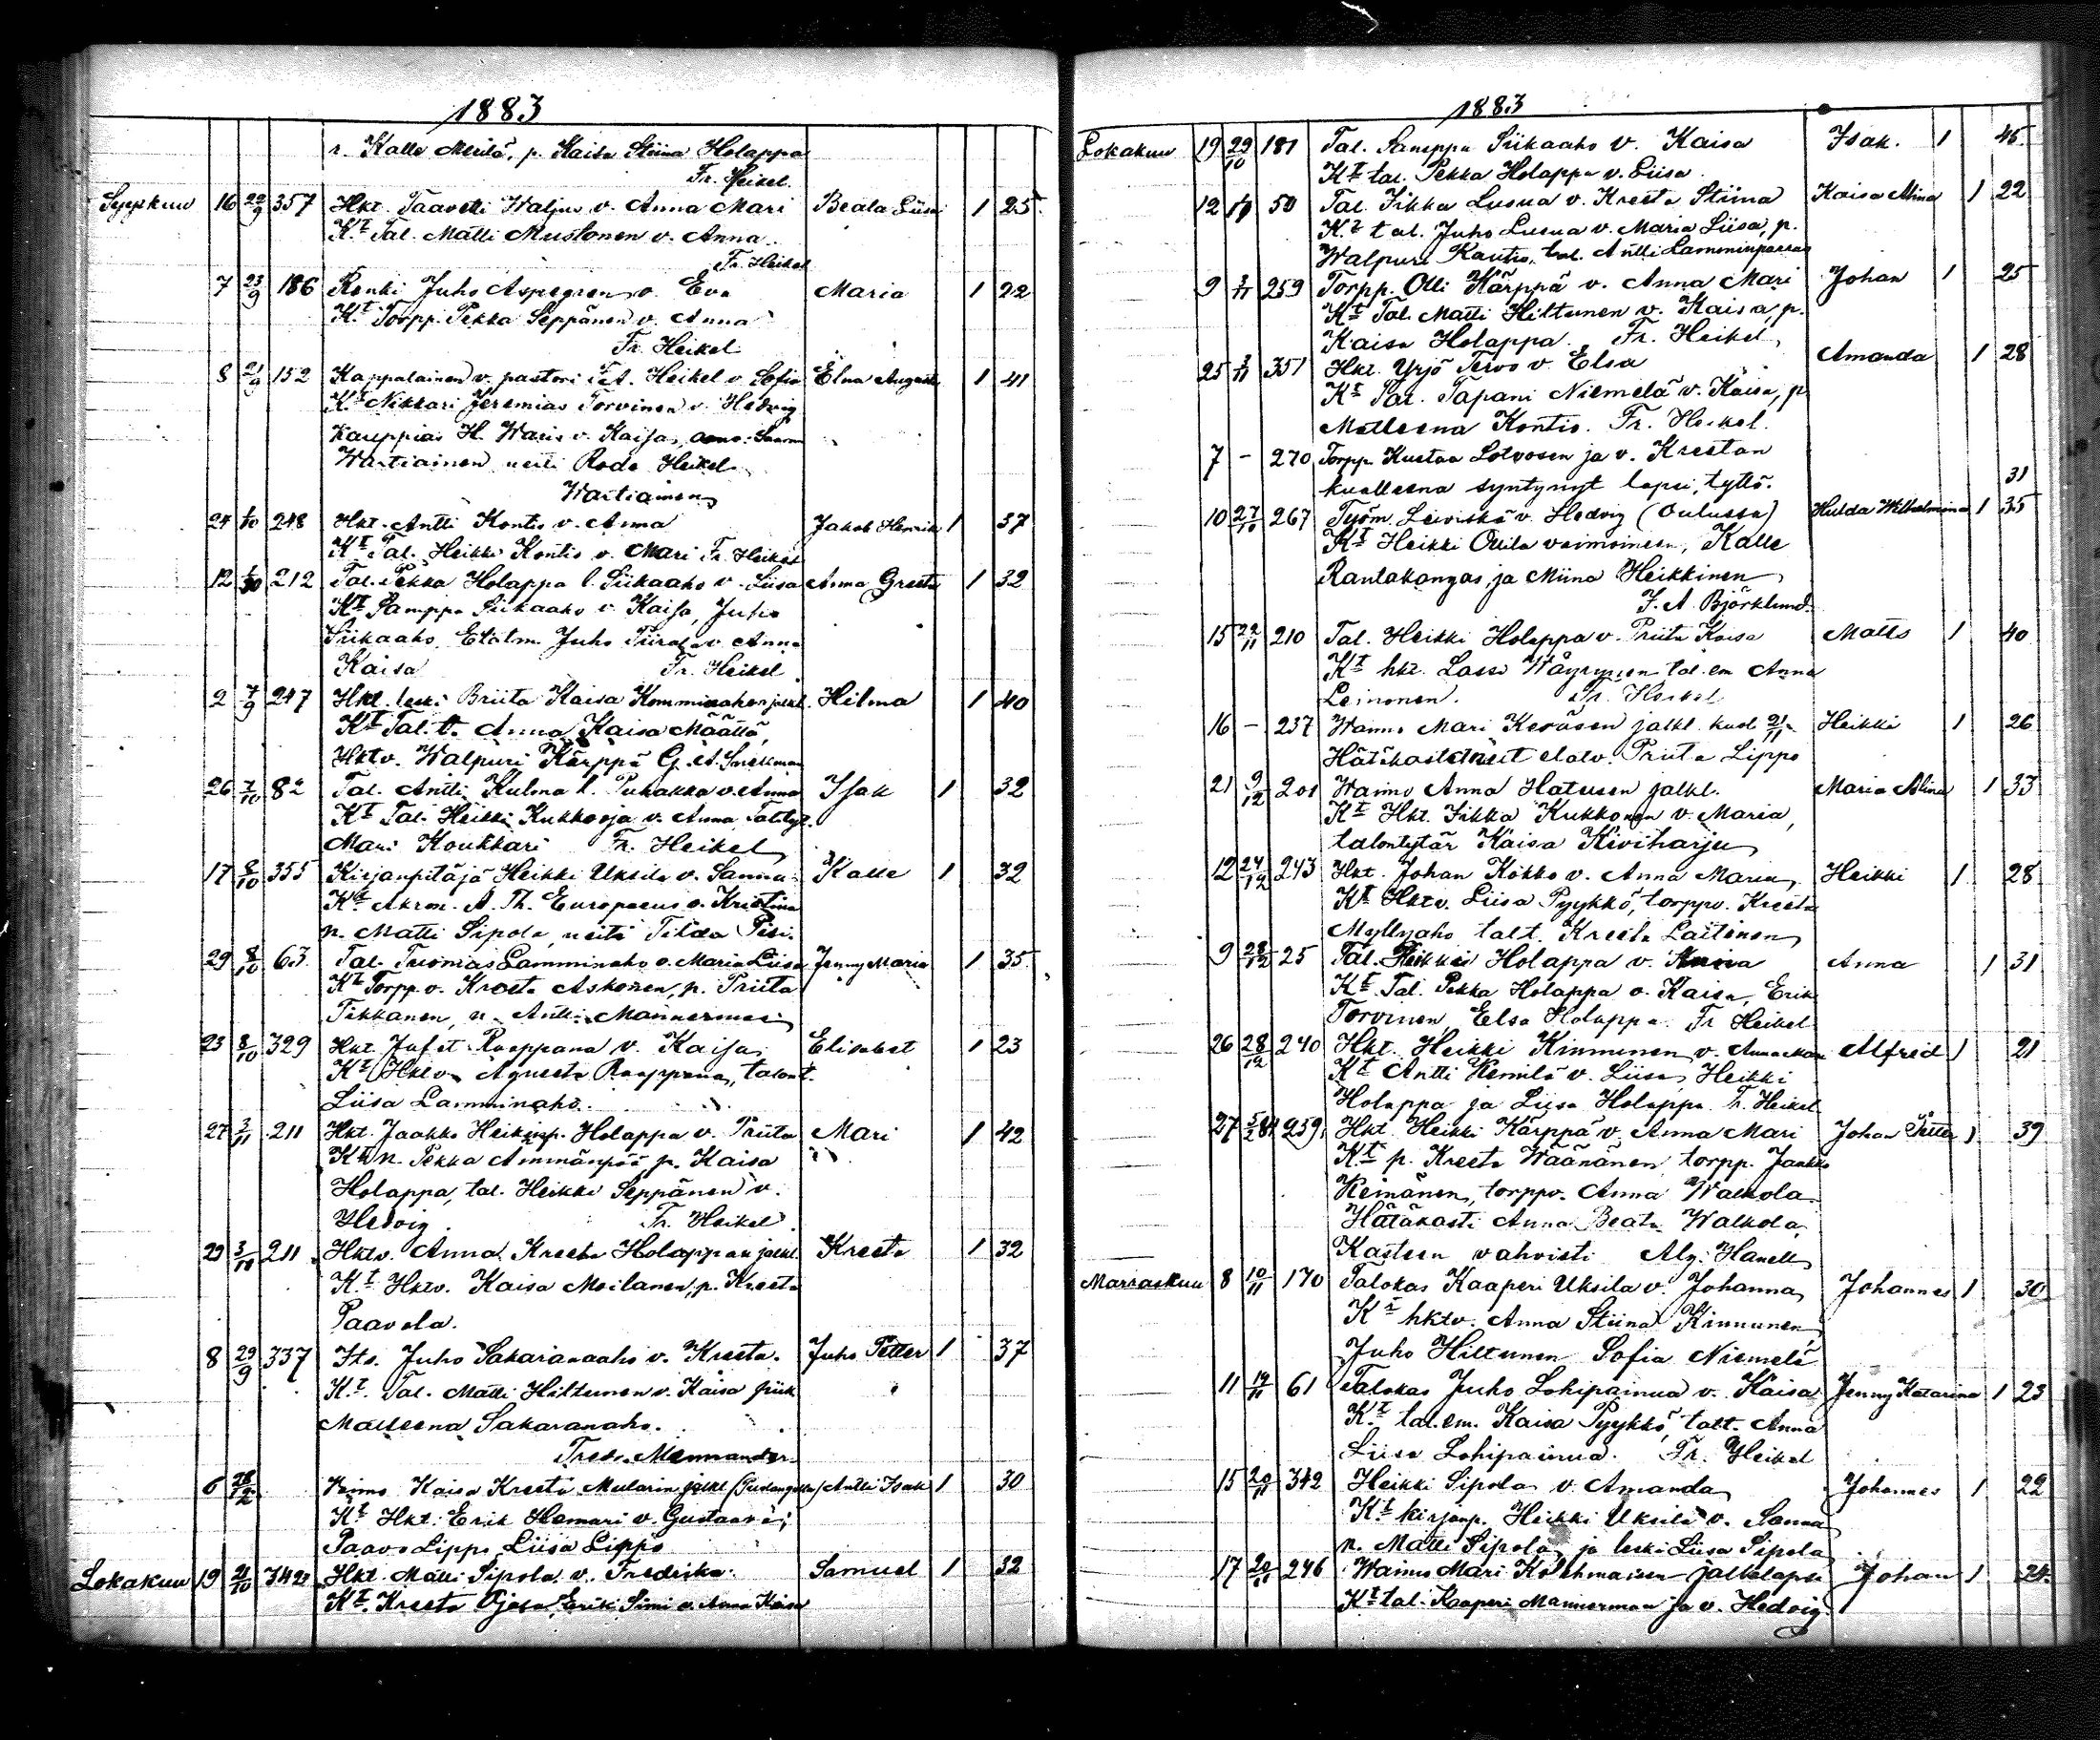 1883
r. Kalle Merilä, p. Kaisa Stiina Holappa
Fr. Heikel.
Syyskuu 16 22/9 357 Hkt. Taavetti Waljus v. Anna Mari Beata Liisa 1 25
Kt Tal. Matti Mustonen v. Anna
Fr. Heikel
7 23/9 186 Renki Juho Aspegren v. Eva Maria 1 22
Kt Torpp. Pekka Seppänen v. Anna
Fr. Heikel
8 21/9 152 Kappalainen v. pastori F.A. Heikel v. Sofia Elna Augusta 1 41
Kt Nikkari Jeremias Torvinen v. Hedvig
Kauppias H. Waris v. Kaisa,
Wartiainen neiti Rode Heikel
Wartiainen
24 1/10 248 Hkt. Antti Kontio v. Anna Jakob Henrik 1 37
Kt Tal. Heikki Kontio v. Mari Fr. Heikel
12 1/10 212 Tal. Pekka Holappa l. Siikaaho v. Liisa Anna Greeta 1 32
Kt Samppa Siikaaho v. Kaisa, Juho
Siikaaho, Juho Piirala v. Anna
Kaisa Fr. Heikel
2 7/9 247 Hkt. leski Briita Kaisa jalkl. Hilma 1 40
Kt Tal. t. Anna Kaisa Määttä,
Hktv. Walpuri Kärppä G. A. Snellman
26 7/10 82 Tal. Antti Kulma l. Puhakka v. Anna Isak 1 32
Kt Tal. Heikki Kukkooja v. Anna, Taltyt.
Mari Koukkari Fr. Heikel
17 8/10 355 Kirjanpitäjä Heikki Uksila v. Sanna Kalle 1 32
Kt A. Th. Europaeus v. Kristina
n. Matti Sipola, neiti Tilda
29 8/10 63 Tal. Tuomas Lamminaho v. Maria Liisa Jenny Maria 1 35
Kt Torpp. v. Kreeta Askonen, p. Priita
Tikkanen, n. Antti Mannermaa
23 8/10 329 Hkt. Jafet Raappana v. Kaisa Elisabet 1 23
Kt Hktv. Agneeta Raappana, talont.
Liisa Lamminaho.
27 3/11 211 Hkt. Jaakko Heikinp. Holappa v. Priita Mari 1 42
Kt n. Pekka Ämmänpää p. Kaisa
Holappa, tal. Heikki Seppänen v.
Hedvig. Fr. Heikel
29 3/11 211 Hktv. Anna Kreeta Holappan jalkl. Kreeta 1 32
Kt Hktv. Kaisa Moilanen, p. Kreeta
Paavola.
8 29/9 337 Its. Juho Sakaranaaho v. Kreeta. Juho Petter 1 37
Kt. Tal. Matti Hiltunen v. Kaisa piik
Malleena Sakaranaho.
Fredr. Mennander.
6 28/12 Waimo Kaisa Kreeta Mularin jalkl (Pudasjärvi) Antti Isak 1 30
Kt Hkt. Erik Hamari v. Gustaava;
Paavo Lippo, Liisa Lippo
Lokakuu 19 21/10 342 Hkt. Matti Sipola v. Fredrika. Samuel 1 32
Kt. Kreeta Ojala Erik Simi v. Anna Kaisa
1883
Lokakuu 19 29/10 181 Tal. Samppa Siikaaho v. Kaisa Isak. 1 45
Kt tal. Pekka Holappa v. Liisa.
12 50 Tal. Iikka Lusua v. Kreeta Stiina Kaisa Miina 1 22
Kt tal. Juho Lusua v. Maria Liisa, p.
Walpuri Kauto, tal. Antti Lamminpaana
9 3/11 259 Torpp. Olli Kärppä v. Anna Mari Johan 1 25
Kt Tal. Matti Hiltunen v. Kaisa, p.
Kaisa Holappa. Fr. Heikel
25 3/11 351 Hkt. Yrjö Tervo v. Elsa Amanda 1 28
Kt Tal. Tapani Niemelä v. Kaisa, p.
Malleena Kontio. Fr. Heikel.
7 - 270 Torpp. Kustaa Lotvosen ja v. Kreetan
kuolleena syntynyt lapsi, tyttö. 31
10 27/10 267 Työm. Leiviskä v. Hedvig (Oulussa) Hulda Wilhelmina 1 35
Kt Heikki Ollila vaimoineen, Kalle
Rantakangas, ja Miina Heikkinen
J. A. Björklund.
15 22/11 210 Tal. Heikki Holappa v. Priita Kaisa Matts 1 40
Kt hkt. Lassi Wäyrynen tal. em Anna
Leinonen. Fr. Heikel
16 - 237 Waimo Mari Keräsen jalkl. kuol 21/11 Heikki 1 26
Hätäkastetneet elatv. Priita Lippo
21 9/12 201 Waimo Anna Hatusen jalkl. Maria Alina 1 33
Kt Hkt. Iikka Kukkonen v. Maria,
talontytär Kaisa Kiviharju
12 27/12 243 Hkt. Johan Kokko v. Anna Maria Heikki 1 28
Kt Hktv. Liisa Pyykkö, torppv. Kreeta
Myllyaho talt. Kreeta Laitinen
9 28/12 25 Tal. Heikki Holappa v. Anna Anna 1 31
Kt Tal. Pekka Holappa v. Kaisa, Erik
Torvinen, Elsa Holappa. Fr Heikel
26 28/12 240 Hkt. Heikki Kinnunen v. Anna Alfred 1 21
Kt Antti Kemilä v. Liisa, Heikki
Holappa ja Liisa Holappa. Fr. Heikel
27 5/2 84 259 Hkt Heikki Kärppä v. Anna Mari Johan Petter 1 39
Kt p. Kreeta Wäänänen, torpp. Jaakko
Keinänen, torppv. Anna Walkola
Hätäkasti Anna Beata Walkola,
Kasteen vahvisti Alg. Hanell
Marraskuu 8 10/11 170 Talokas Kaaperi Uksila v. Johanna Johannes 1 30
Kt hktv. Anna Stiina Kinnunen,
Juho Hiltunen Sofia Niemelä
11 19/11 61 Talokas Juho Lohipainua v. Kaisa Jenny Katarina 1 23
Kt tal. em. Kaisa Pyykkö, talt. Anna
Liisa Lohipainua. Fr. Heikel
15 20/11 342 Heikki Sipola v. Amanda Johannes 1 22
Kt kirjanp. Heikki Uksila v. Sanna
n. Matti Sipola, ja leski Liisa Sipola
17 20/11 246 Waimo Mari Kolehmaisen jalkalapsi Johan 1 24.
Kt tal. Kaaperi Mannermaa ja v. Hedvig.